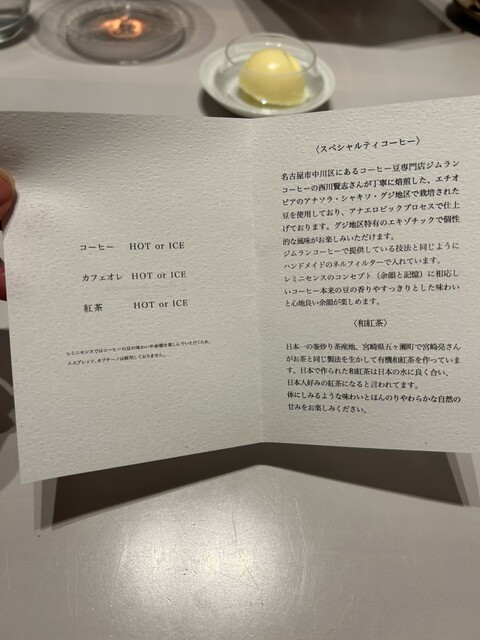 コーヒー HOT or ICE
カフェオレ HOT or ICE
紅茶 HOT or ICE
レミニセンスではコーヒーの豆の味わいや余韻を楽しんでいただくため、
エスプレッソ、カプチーノは御用しておりません。
〈スペシャルティコーヒー〉
名古屋市中川区にあるコーヒー豆専門店ジムラン
コーヒーの西川賢志さんが丁寧に焙煎した、エチオ
ピアのアナソラ・シャキソ・グジ地区で栽培された
豆を使用しており、アナエロビックプロセスで仕上
げております。グジ地区特有のエキゾチックで個性
的な風味がお楽しみいただけます。
ジムランコーヒーで提供している技法と同じように
ハンドメイドのネルフィルターで入れています。
レミニセンスのコンセプト（余韻と記憶）に相応し
いコーヒー本来の豆の香りやすっきりとした味わい
と心地良い余韻が楽しめます。
〈和紅茶〉
日本一の釜炒り茶産地、宮崎県五ヶ瀬町で宮崎亮さん
がお茶と同じ製法を生かして有機和紅茶を作っていま
す。日本で作られた和紅茶は日本の水に良く合い、
日本人好みの紅茶になると言われてます。
体にしみるような味わいとほんのりやわらかな自然の
甘みをお楽しみください。